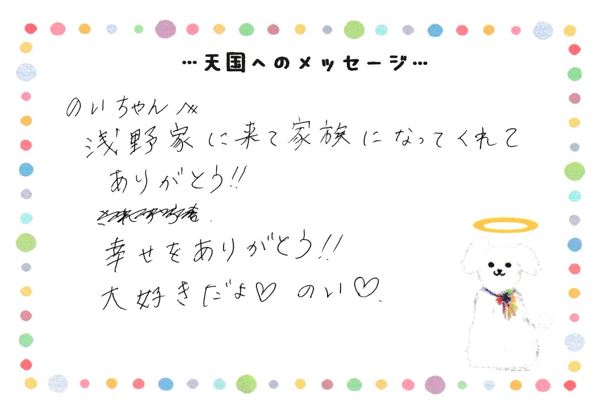 …天国へのメッセージ…
のいちゃんへ
浅野家に来て家族になってくれて
ありがとう!!
幸せをありがとう!!
大好きだよ♡ のい♡.